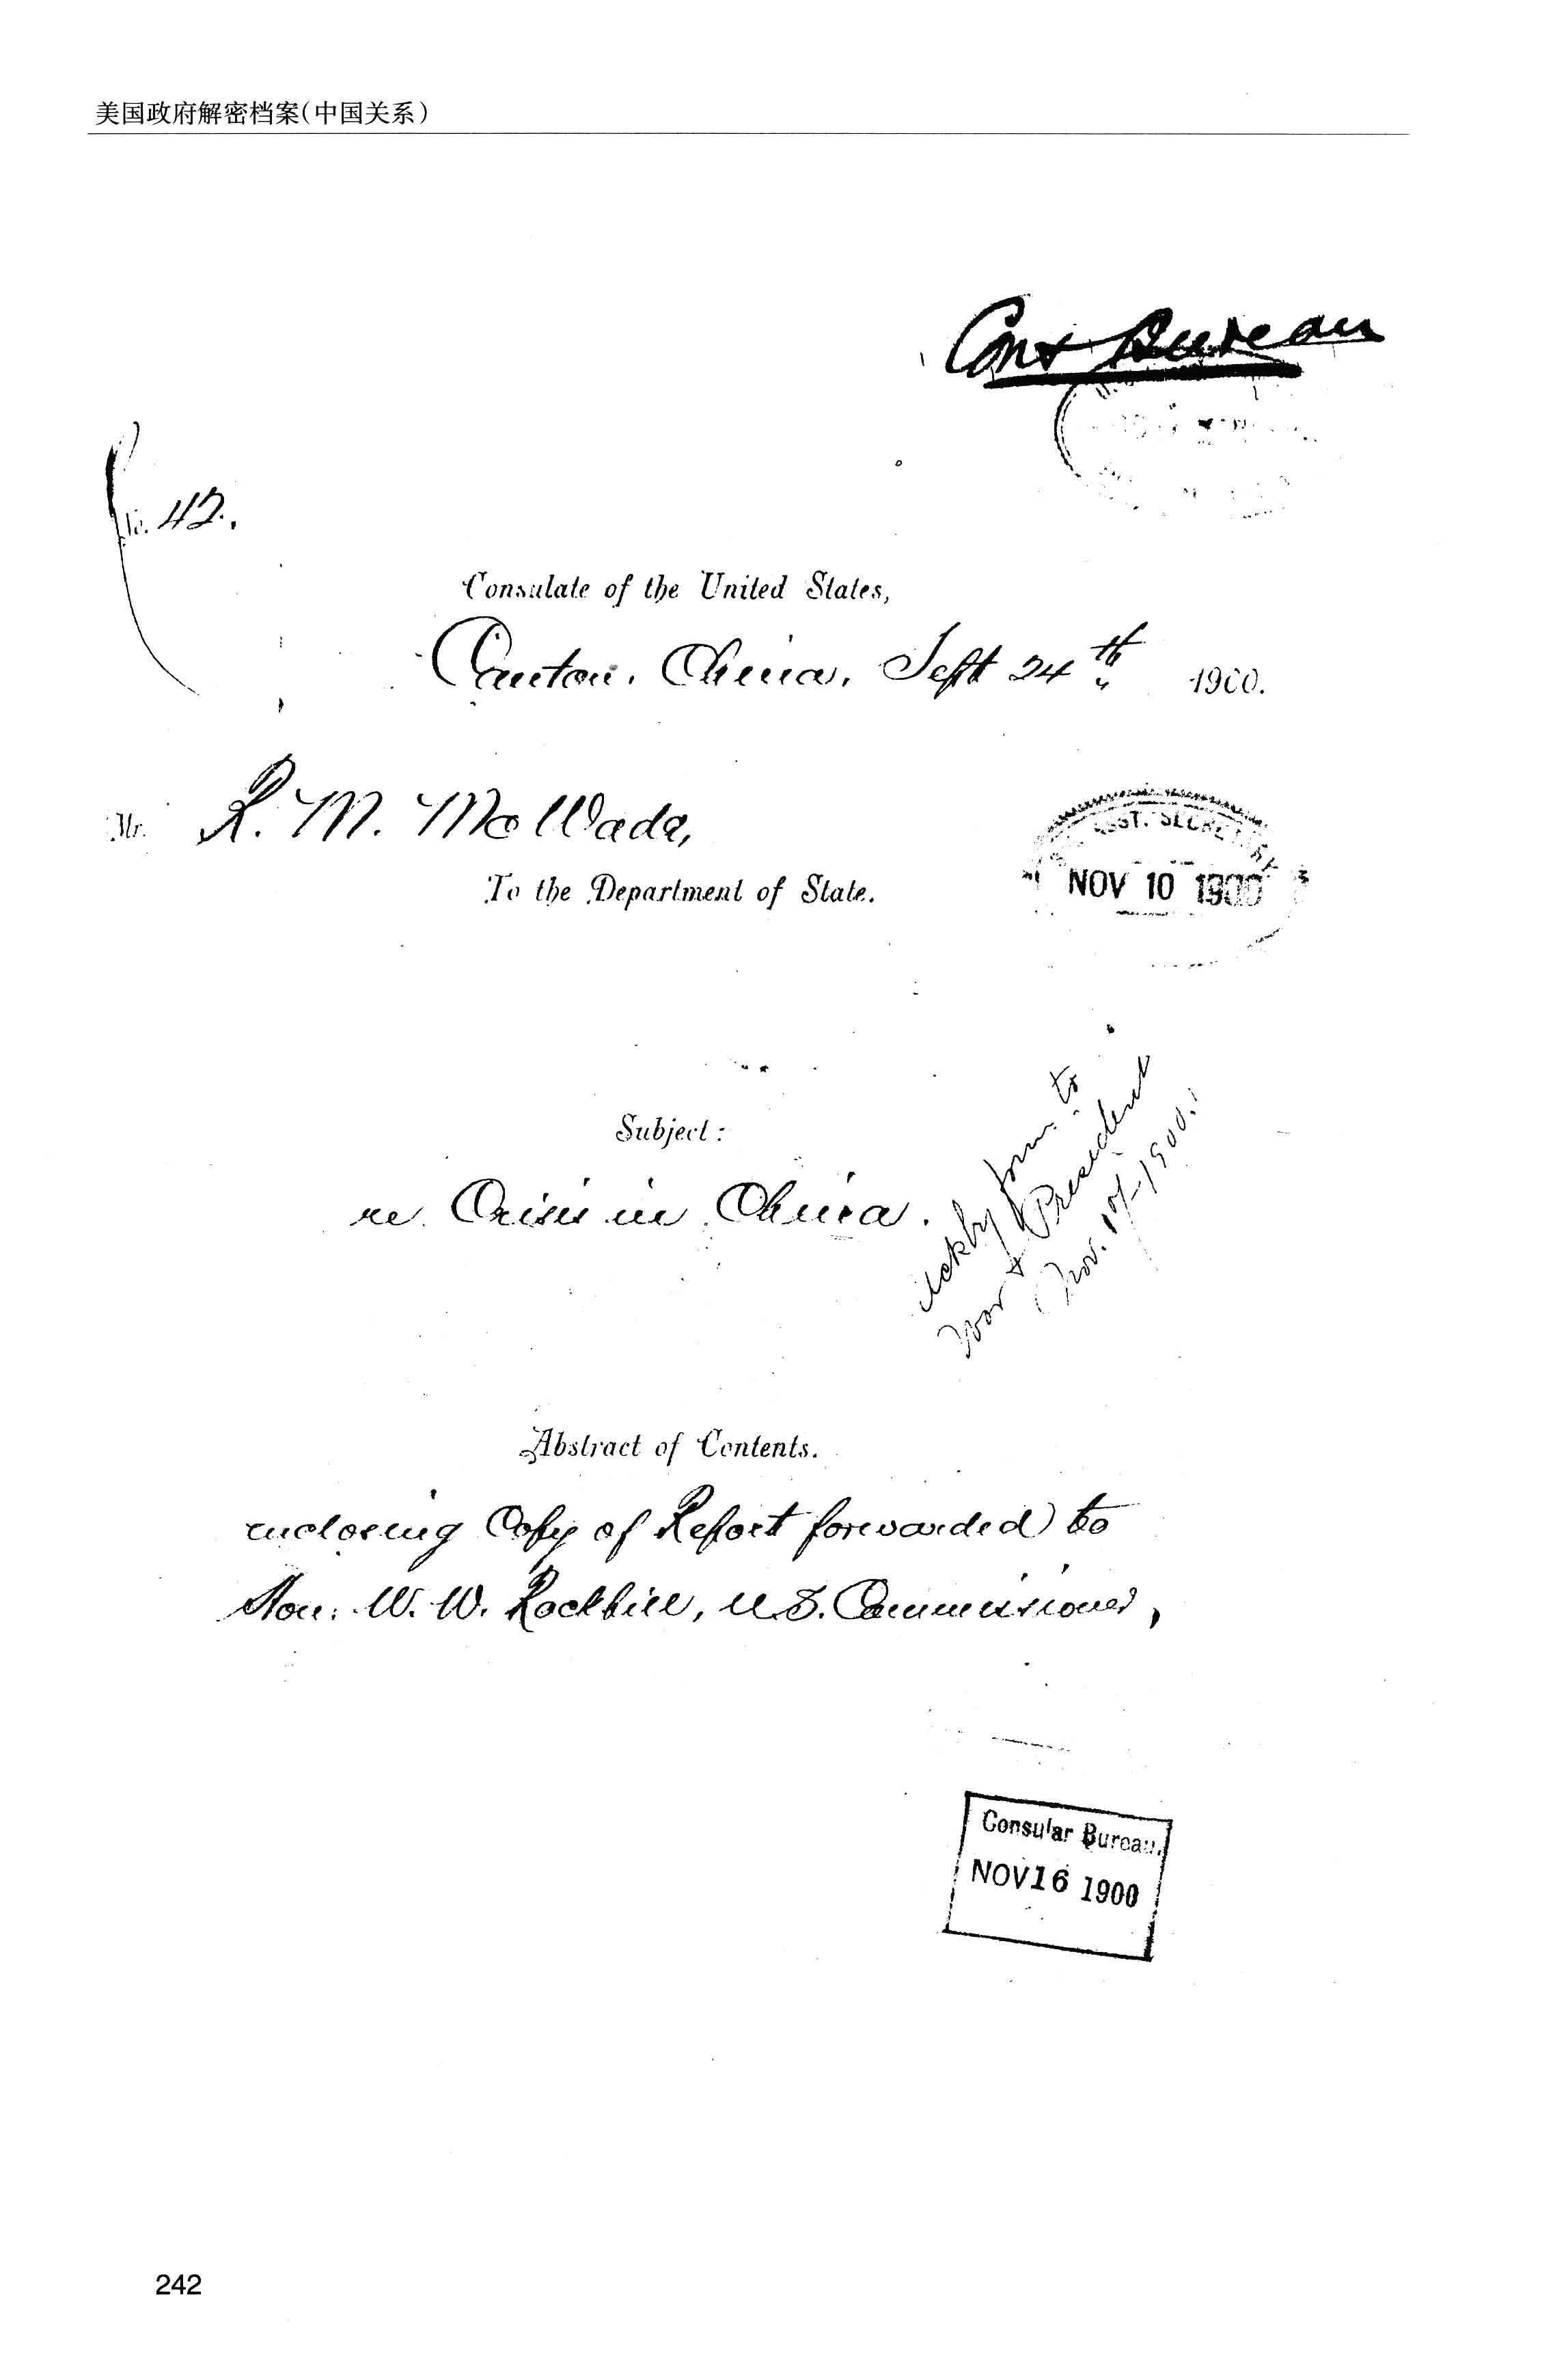 美国政府解密档案(中国关系)
Cons Bureau
No. 42.
Consulate of the United States,
Canton, China, Sept 24th 1900.
Mr. R. M. McWade,
To the Department of State.
ASST. SECRETARY
NOV 10 1900
Subject:
re Crisis in China.
Ack by form to
War & President
Nov. 17-1900.
Abstract of Contents.
enclosing Copy of Report forwarded to
Hon. W. W. Rockhill, U.S. Commissioner,
Consular Bureau.
NOV 16 1900
242